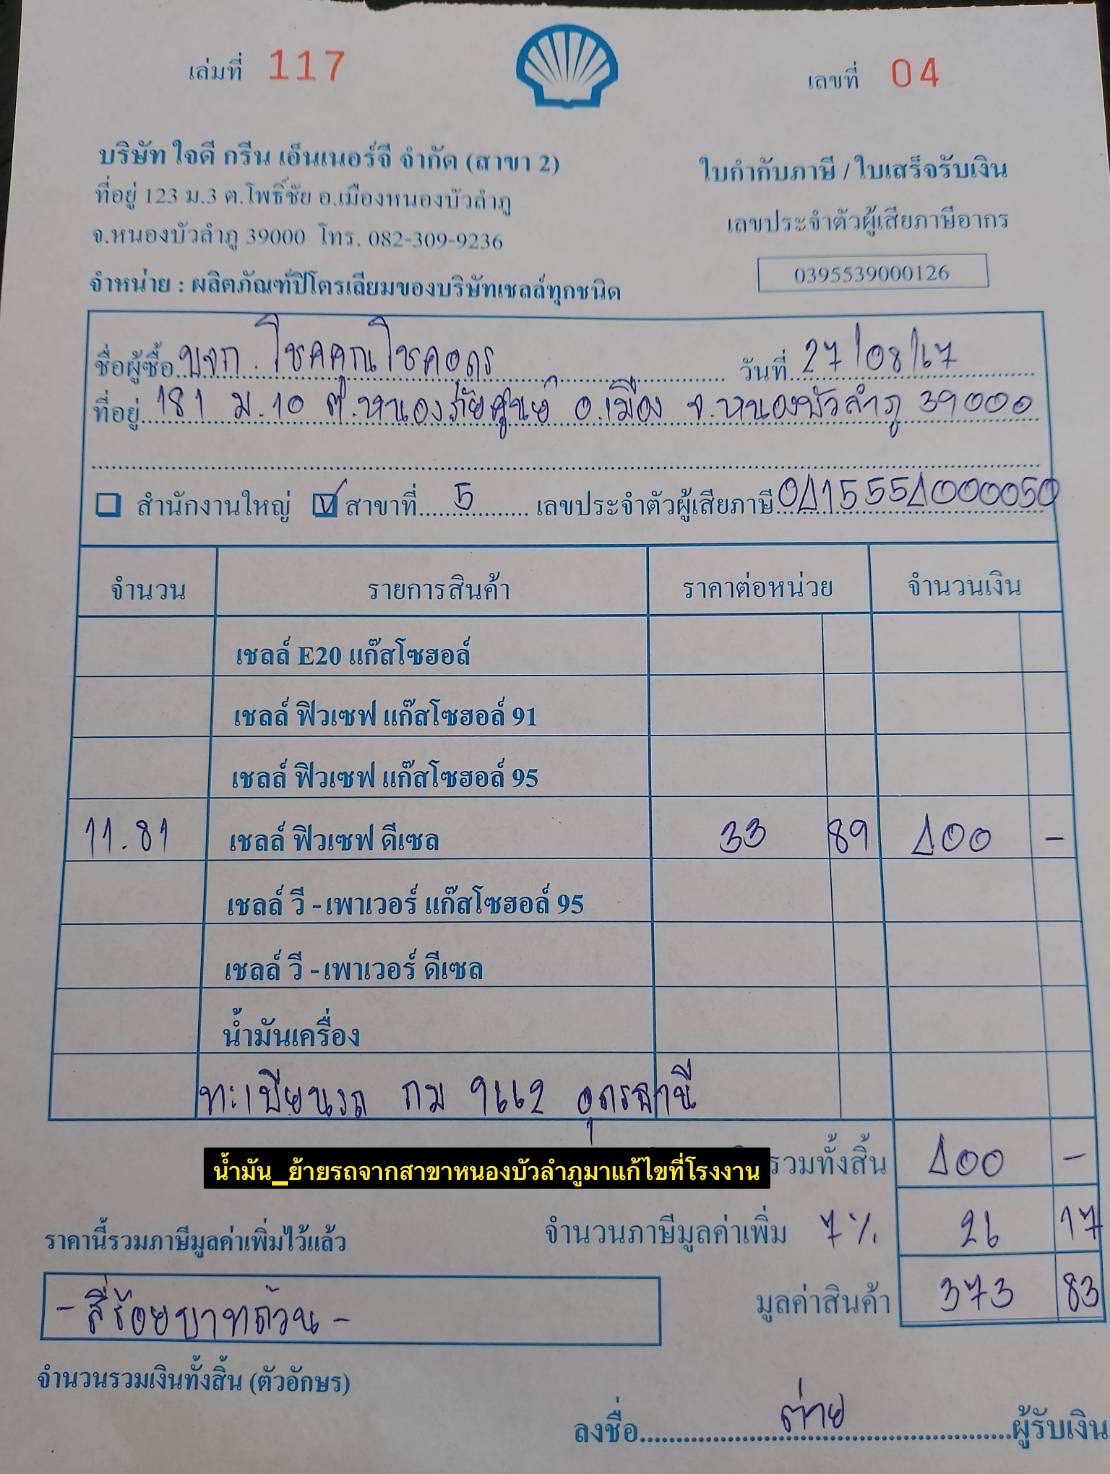 เล่มที่ 117
เลขที่ 04
บริษัท ใจดี กรีน เอ็นเนอร์จี จำกัด (สาขา 2)
ที่อยู่ 123 ม.3 ต.โพธิ์ชัย อ.เมืองหนองบัวลำภู
จ.หนองบัวลำภู 39000 โทร. 082-309-9236
จำหน่าย : ผลิตภัณฑ์ปิโตรเลียมของบริษัทเชลล์ทุกชนิด
ใบกำกับภาษี / ใบเสร็จรับเงิน
เลขประจำตัวผู้เสียภาษีอากร
0395539000126
ชื่อผู้ซื้อ บจก. โชคคณโชคอดร วันที่ 27/08/67
ที่อยู่ 181 ม.10 ต.หนองภัยศูนย์ อ.เมือง จ.หนองบัวลำภู 39000
สำนักงานใหญ่ สาขาที่ 5 เลขประจำตัวผู้เสียภาษี 0415554000050
จำนวน รายการสินค้า ราคาต่อหน่วย จำนวนเงิน
เชลล์ E20 แก๊สโซฮอล์
เชลล์ ฟิวเซฟ แก๊สโซฮอล์ 91
เชลล์ ฟิวเซฟ แก๊สโซฮอล์ 95
11.81 เชลล์ ฟิวเซฟ ดีเซล 33 89 400 -
เชลล์ วี - เพาเวอร์ แก๊สโซฮอล์ 95
เชลล์ วี - เพาเวอร์ ดีเซล
น้ำมันเครื่อง
ทะเบียนรถ กม 9662 อุดรธานี
น้ำมัน_ย้ายรถจากสาขาหนองบัวลำภูมาแก้ไขที่โรงงาน
รวมทั้งสิ้น 400 -
จำนวนภาษีมูลค่าเพิ่ม 7% 26 17
ราคานี้รวมภาษีมูลค่าเพิ่มไว้แล้ว
มูลค่าสินค้า 373 83
- สี่ร้อยบาทถ้วน -
จำนวนรวมเงินทั้งสิ้น (ตัวอักษร)
ลงชื่อ ต่าย ผู้รับเงิน